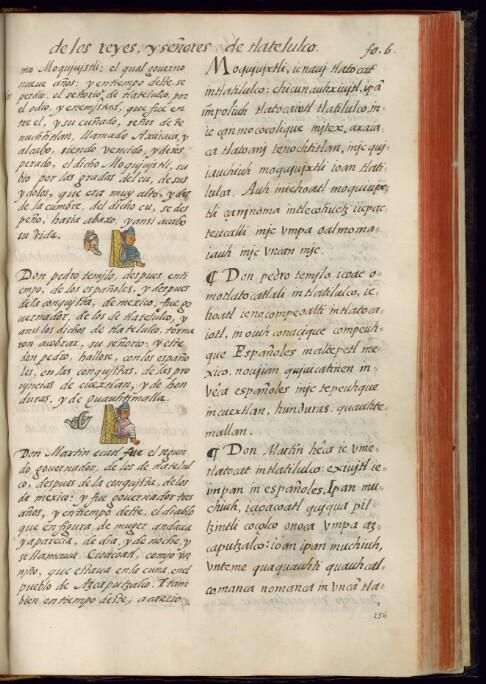 de los reyes, y señores de tlatelulco. fo. 6.
mo Moquiujstli: el qual governo
nueve años: y en tiempo deste se
perdio el señorio de tlatelulco, por
el odio, y enemistad, que fue en
tre el, y su cuñado, señor de te
nuchtitlan, llamado Axaiaca, y
al cabo, siendo vencido, y deses
perado, el dicho Moquiujstli, su
bio por las gradas del cu, de sus
ydolos, que era muy alto, y des
de la cumbre, del dicho cu, se des
peño, hazia abaxo, y ansi acabo
su vida.
Don pedro temjlo, despues en ti
empo, de los españoles, y despues
de la conqujsta, de mexico, fue go
vernador, de los de tlatelulco, y
ansi los dichos de tlatelulco, torna
ron a cobrar, su señorio: y este
don pedro, hallose, con los españo
les, en las conqujstas, de las pro
vyncias de cuextlan, y de hon
duras, y de Quauhtimalla.
Don Martin ecatl fue el segun
do governador, de los de tlatelul
co, despues de la conqujsta, de los
de mexico: y fue governador tres
años, y en tiempo deste, el diablo
que en figura de muger andava
y aparecia, de dia, y de noche, y
se llamava Cioacoatl, comjo vn
njño, que estava en la cuna, en el
pueblo de Azcaputzalco. I tam
bien en tiempo deste, acaezio
Moqujujxtli, ic navj tlatocat
in tlatilulco: chicunauhxiujtl, ipã
in poliuh tlatocaiotl tlatilulco, in
ic çan mococolique in jtex, axaia
ca tlatoanj tenochtitlan, in jc quj
iauchiuh moqujujxtli ioan tlati
lulca. Auh in ixhoatl moqujujx
tli çan jnoma in tlecohuetz iicpac,
teucalli in jc vmpa oalmoma
iauh in jc vncan mjc.
¶ Don pedro temjlo icoac o
motlatocatlali in tlatilulco, ie
hoatl ie no compeoalti in tlatoca
iotl, in ouh conaçique compeuh
que Españoles in altepetl me
xico. noujian qujujcatinen in
Españoles in jc tepeuhque
in cuextlan, hunduras. quauhte
mallan.
¶ Don Martin hecatl ic vme
tlatocat in tlatilulco: exiujtl ie
impan in españoles. Ipan mu
chiuh, in cioacoatl qujqua pil
tzintli coçolco onoca vmpa az
caputzalco: ioan ipan muchiuh,
vnteme quaquauhti quauhcalco
comanca nomanca in vncã tla
256